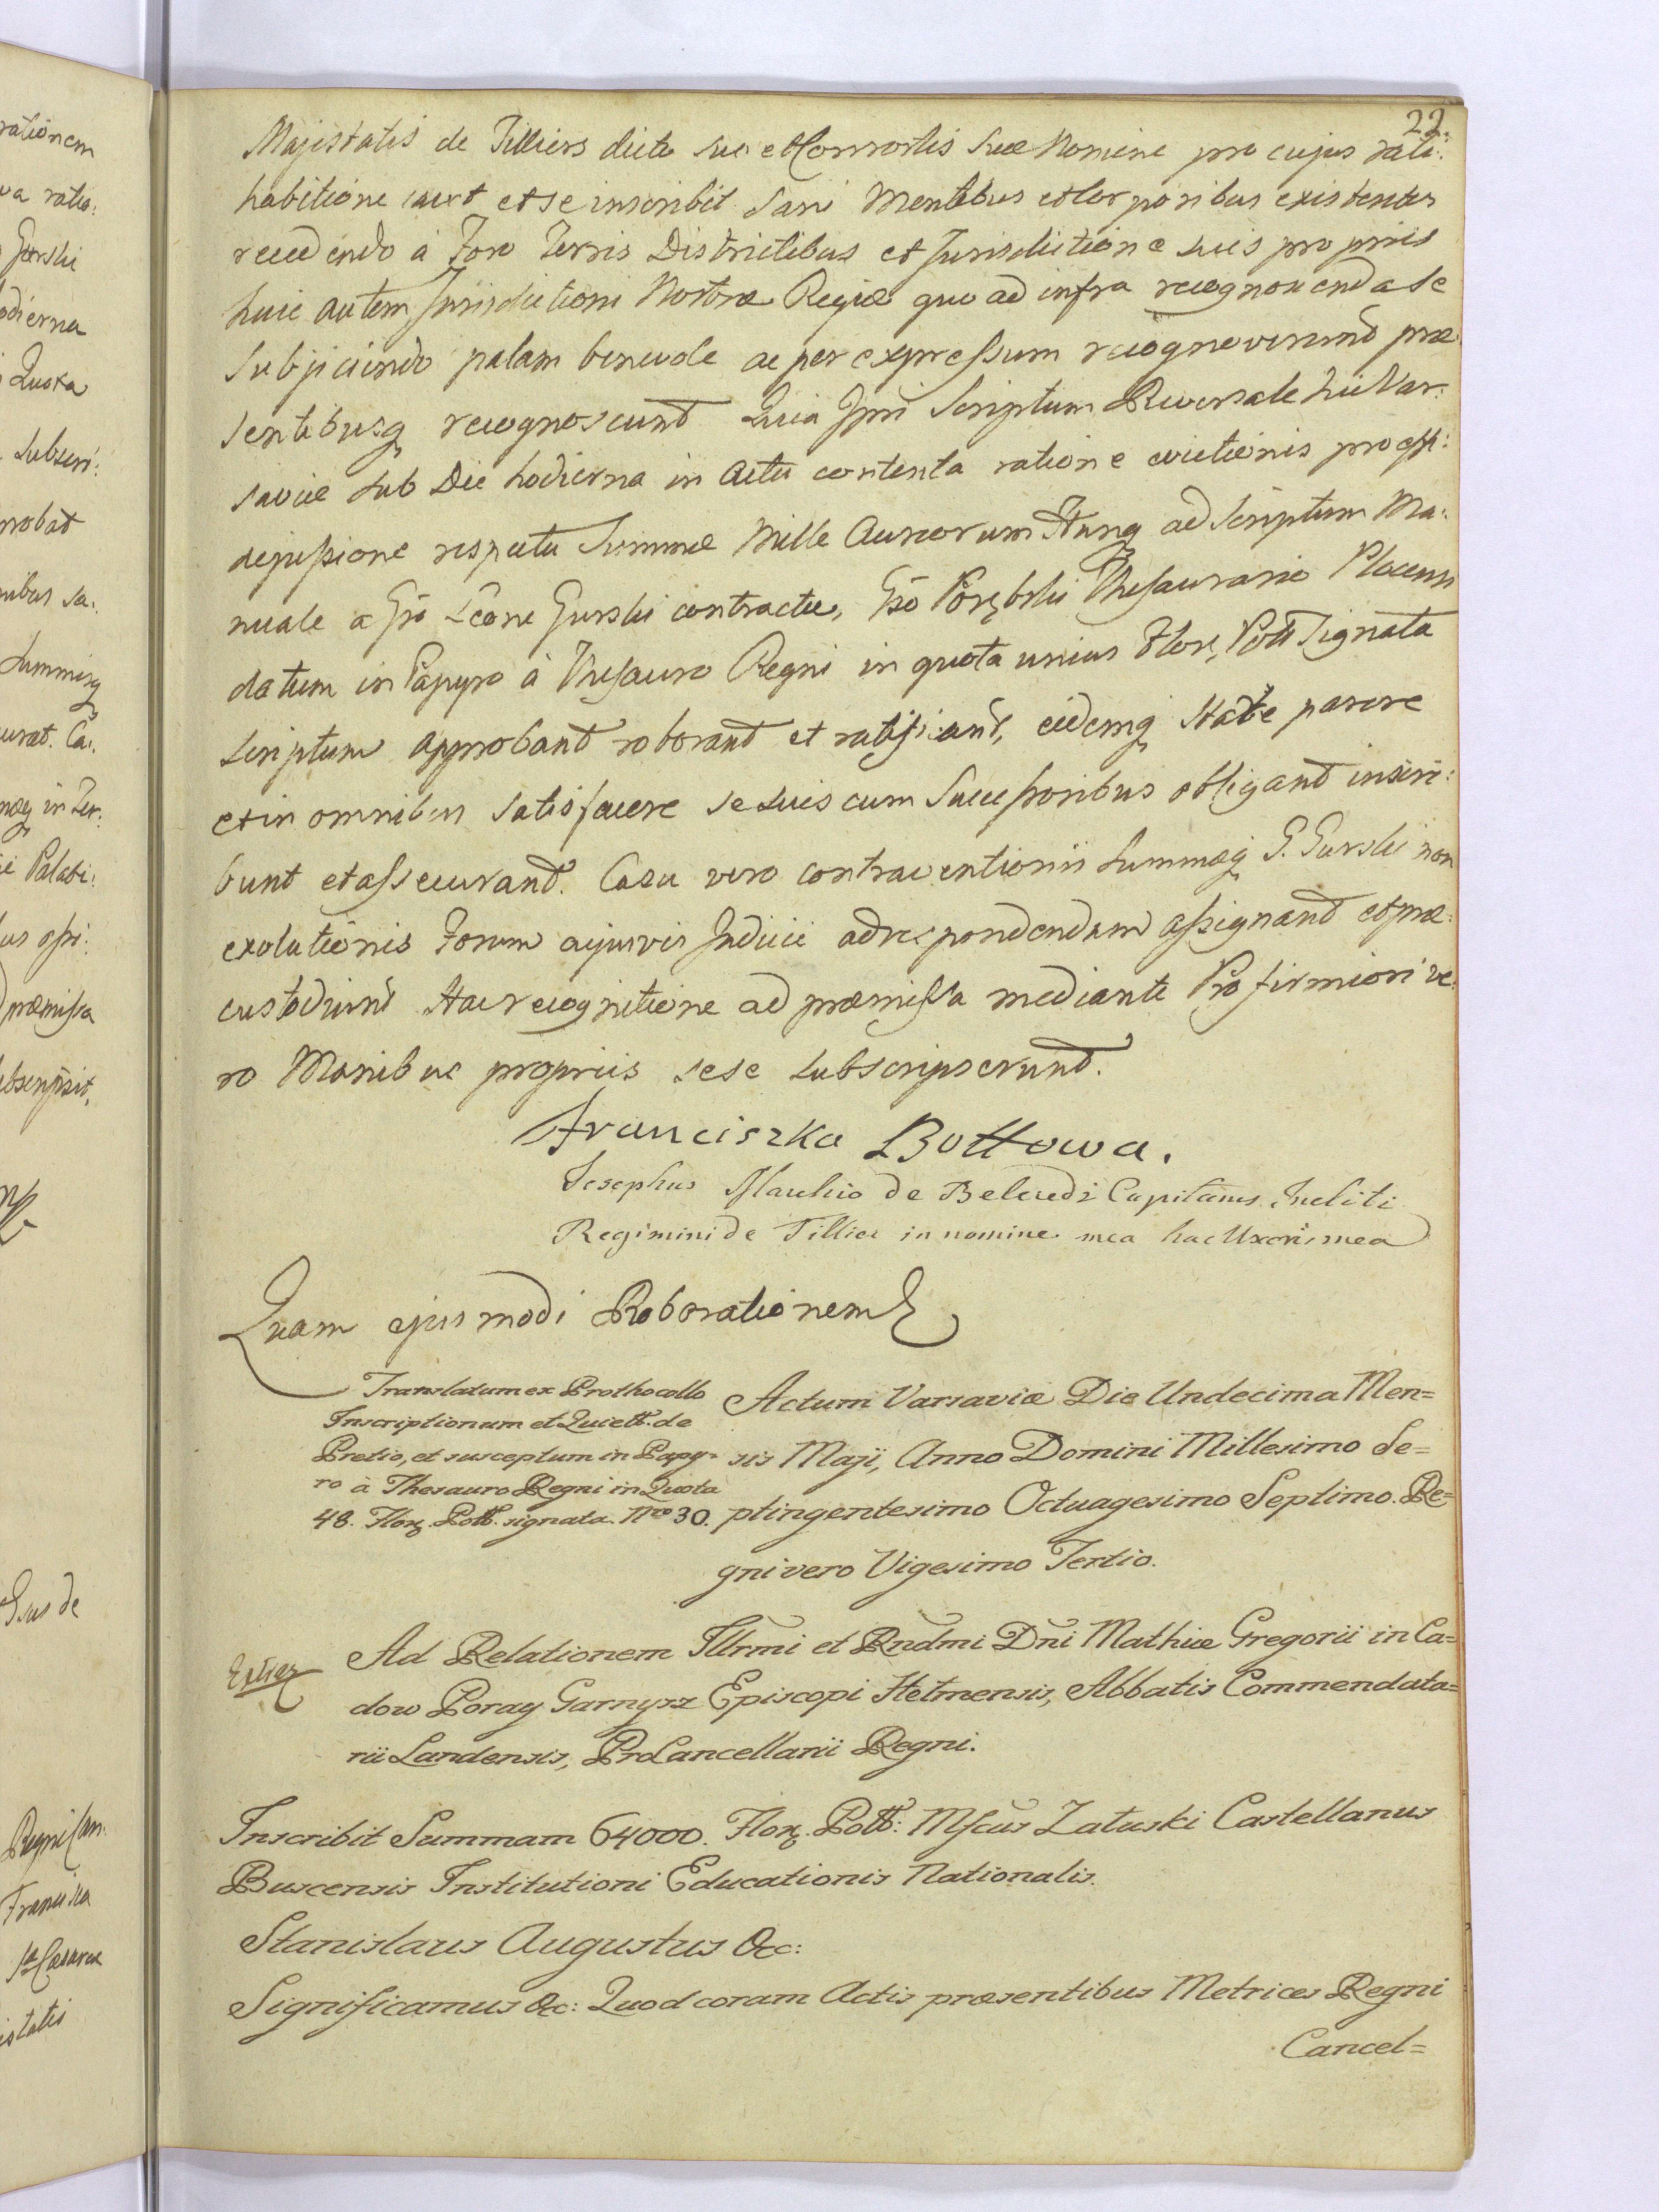 22.
Majestatis de Tilliers dicte suo et Consortis suæ Nomine pro cujus rati:
habitione cavet et se inscribit. Sani Mentibus et Corporibus existentes
recedendo à Foro Terris Districtibus et Jurisdictione suis propriis
huic autem Jurisdictioni Nostræ Regiæ quo ad infra recognoscenda se
Subjiciendo palam benevole ac per expressum recognoverunt præ
sentibusq recognoscunt Quia Ipsi Scriptum Reversale hic Var:
saviæ sub Die hodierna in Actu contenta ratione evictionis pro
dejussione respectu Summæ Mille Aureorum Hung ad Scriptum Ma:
nuale a Gso Leone Gurski contractæ, Gso Porębski Thesaurario
datum in Papyro à Thesauro Regni in quota unius Flor, Poll Signata
Scriptum approbant roborant et ratificant, eidemq State parere
et in omnibus satisfacere se suis cum Successoribus obligant inscri:
bunt et assecurant. Casu vero contraventionis Summæq G. Gurski non
exolutionis Forum cujusvis Judicii ad respondendum assignant et præ:
custodiunt Hac recognitione ad præmissa mediante Pro firmiori ve:
ro Manibus propriis sese subscripserunt.
Franciszka Bottowa.
Josephus Marchio de Belcredi Capitanus Incliti
Regimini de Tillier in nomine mea hac Uxoris mea
Quam ejusmodi Roborationem
Translatum ex Prothocollo
Inscriptionum et Quiett. de
Pretio, et susceptum in Papy-
ro à Thesauro Regni in Quota
48. Flor. Poll. signata. Nro 30.
Actum Varsaviæ Die Undecima Men=
sis Maji, Anno Domini Millesimo Se=
ptingentesimo Octuagesimo Septimo. Re=
gni vero Vigesimo Tertio.
Ad Relationem Illrmi et Rndmi Dni Mathiæ Gregorii in Ca=
dow Poray Garnysz Episcopi Hetmensis, Abbatis Commendata=
rii Landensis, ProCancellarii Regni.
Inscribit Summam 64000. Flor. Poll: Mfcus Załuski Castellanus
Buscensis Institutioni Educationis Nationalis.
Stanislaus Augustus &c:
Significamus &c: Quod coram Actis præsentibus Metrices Regni
Cancel=